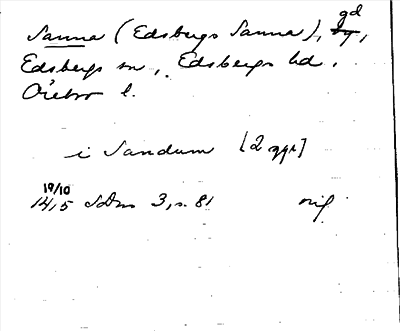 Sanna (Edsbergs Sanna), gd,
Edsbergs sn, Edsbergs hd,
Örebro l.
i Sandum [2 ggr]
19/10
1415 SDns 3, s. 81 orig